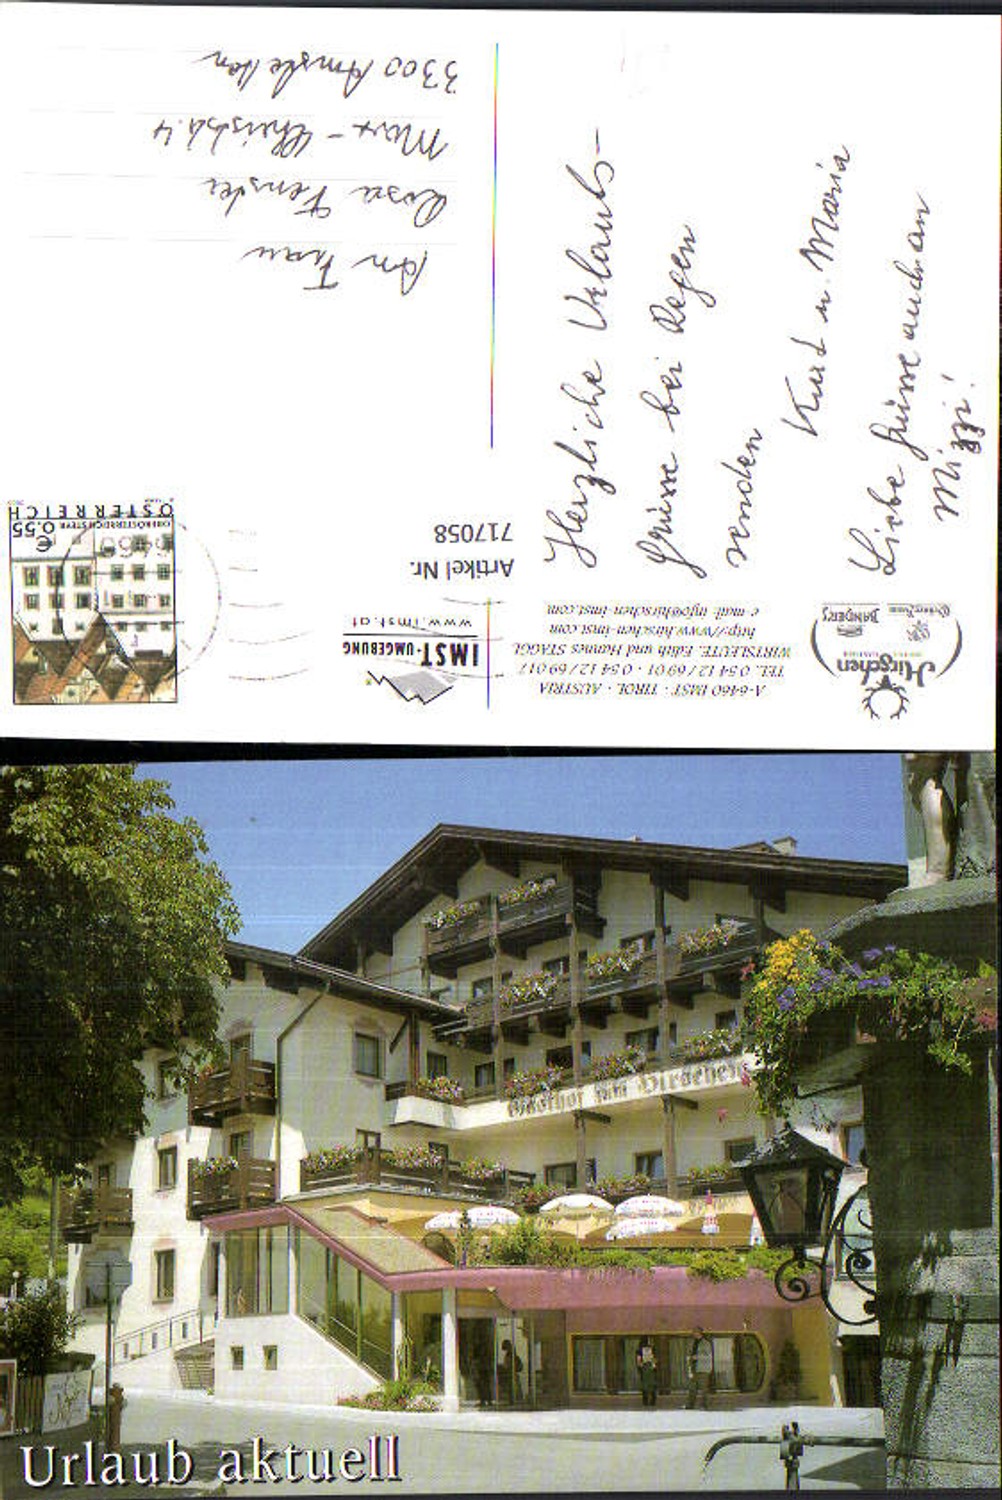 Herzliche Urlaubs-
grüsse bei Regen
senden
Kurt u. Maria
Liebe Grüsse auch an
Mizzi!
An Frau
Rosa
3300 Amstetten
ÖSTERREICH
€ 0.55
OBERÖSTERREICH STEYR
6460
IMST-UMGEBUNG
www.imst.at
Artikel Nr.
717058
Hirschen
BANDERS
A-6460 IMST · TIROL · AUSTRIA
TEL. 0 54 12 / 69 01 · 0 54 12 / 69 017
WIRTSLEUTE, Edith und Hannes STAGGL
http://www.hirschen-imst.com
e-mail: info@hirschen-imst.com
Gasthof zum Hirschen
Urlaub aktuell